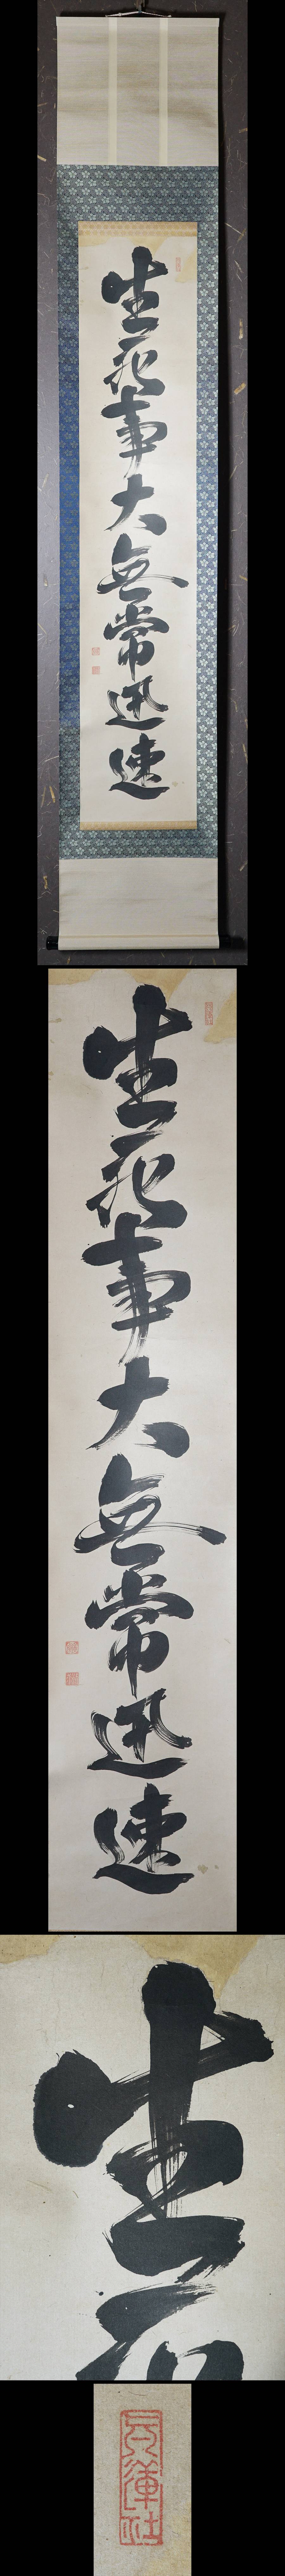 生死事大無常迅速
生死事大無常迅速
生
蓮社